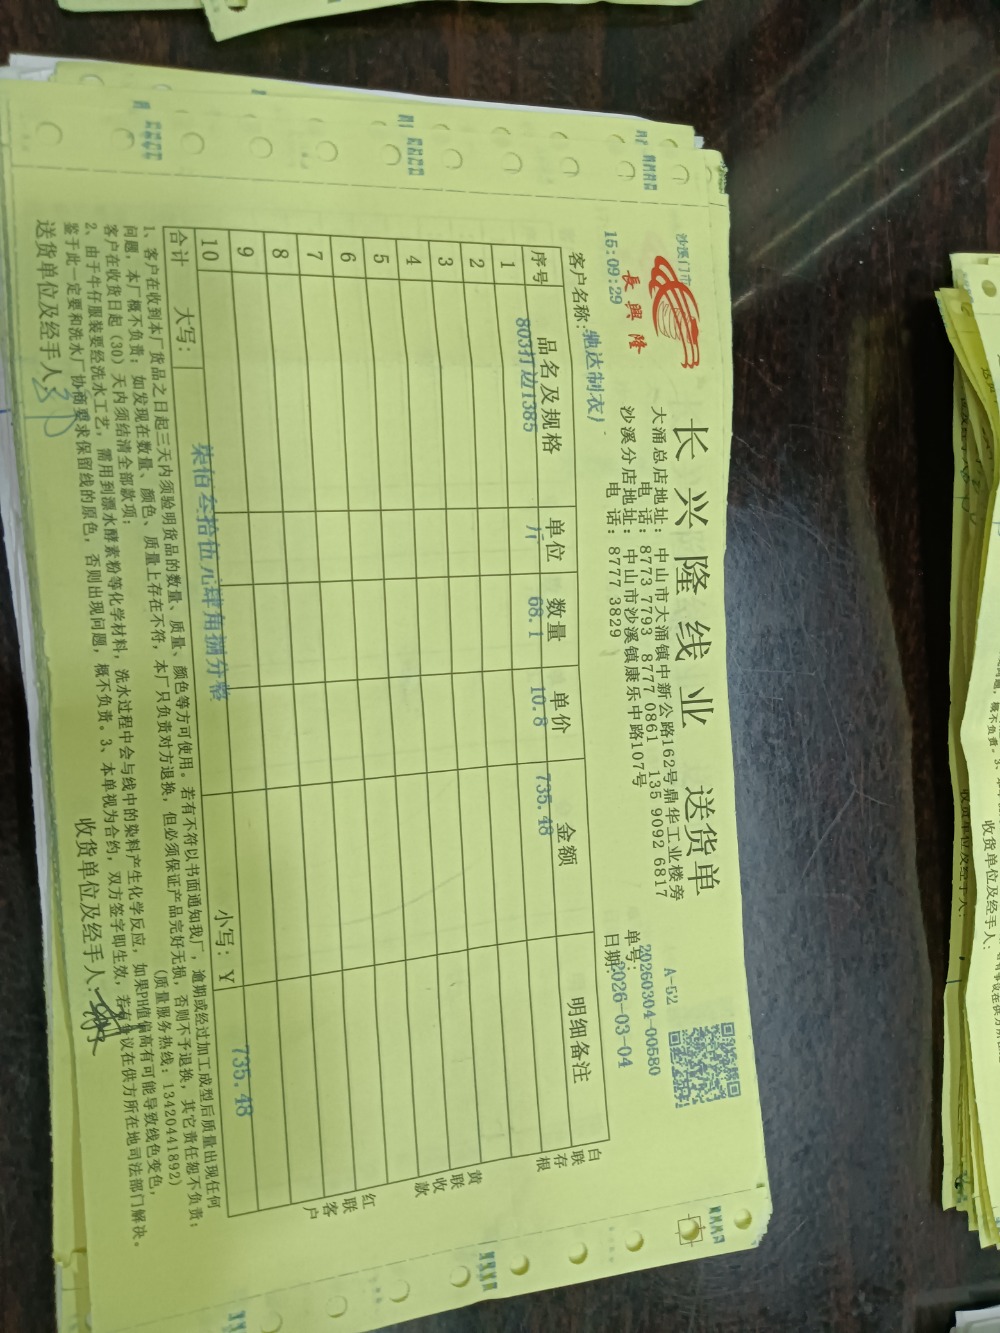 沙溪门市
長興隆
15:09:29
长兴隆线业 送货单
大涌总店地址：中山市大涌镇中新公路162号鼎华工业楼旁
电话：8773 7793 8777 0861 135 9092 6817
沙溪分店地址：中山市沙溪镇康乐中路107号
电话：8777 3829
A-52
单号：20260304-00580
日期：2026-03-04
客户名称：驰达制衣厂
序号 品名及规格 单位 数量 单价 金额 明细备注
1 803打边1385 斤 68.1 10.8 735.48
2
3
4
5
6
7
8
9
10
合计 大写： 柒佰叁拾伍元肆角捌分整 小写：￥ 735.48
白联存根
黄联收款
红联客户
1、客户在收到本厂货品之日起三天内须验明货品的数量、质量、颜色等方可使用。若有不符以书面通知我厂，逾期或经过加工成型后质量出现任何
问题，本厂概不负责；如发现在数量、颜色、质量上存在不符，本厂只负责对方退换，但必须保证产品完好无损，否则不予退换，其它责任恕不负责；
客户在收货日起（30）天内须结清全部款项； （质量服务热线：13420441892）
2、由于牛仔服装要经洗水工艺，需用到漂水酵素粉等化学材料，洗水过程中会与线中的染料产生化学反应，如果PH值偏高有可能导致线色变色，
鉴于此一定要和洗水厂协商要求保留线的原色，否则出现问题，概不负责。3、本单视为合约，双方签字即生效，若有争议在供方所在地司法部门解决。
送货单位及经手人：
收货单位及经手人：
收货单位及经手人：